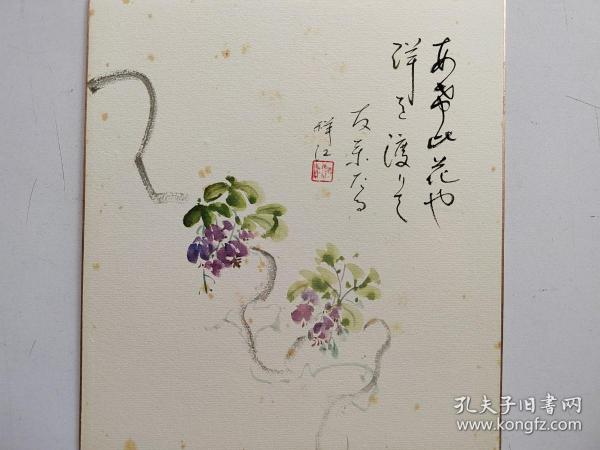 あ希此花や
洋を渡りて
友来たる
祥江
孔夫子旧书网
www.kongfz.com